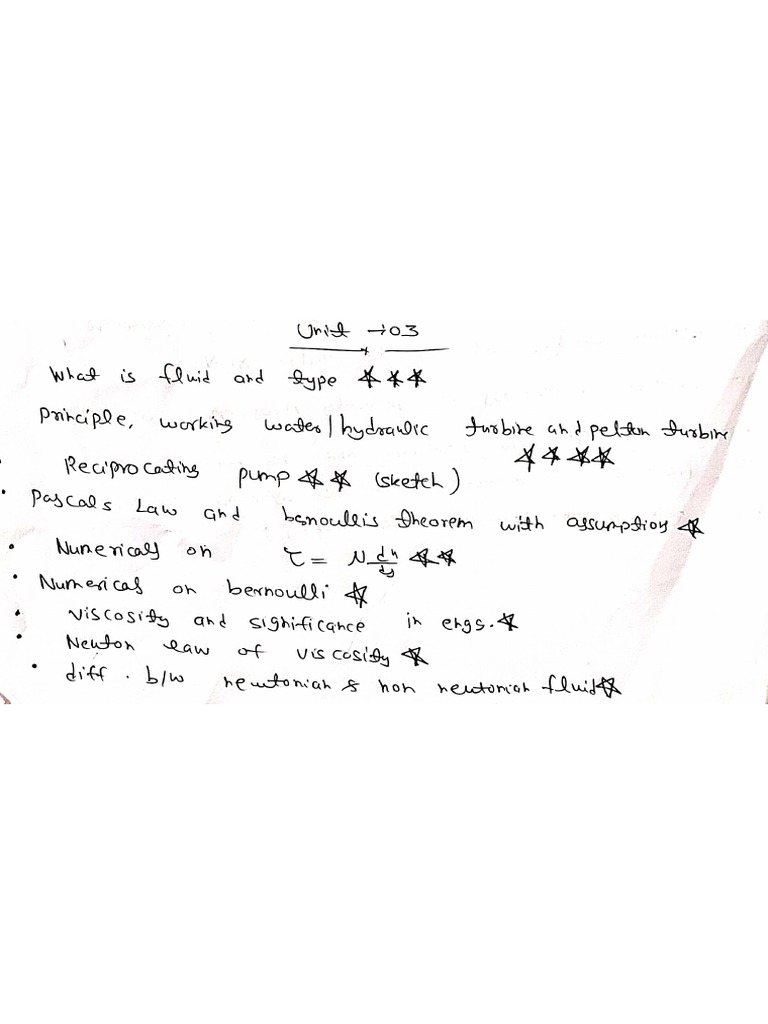 Unit → 03
What is fluid and type ★ ★ ★
Principle, working water/hydraulic turbine and pelton turbine
★ ★ ★ ★
Reciprocating pump ★ ★ (sketch)
• Pascals Law and bernoullis theorem with assumption ★
• Numericals on τ = μ du/dy ★ ★
• Numericals on bernoulli ★
• Viscosity and significance in engg. ★
• Neuton law of viscosity ★
• diff. b/w newtonian & non newtonian fluid ★